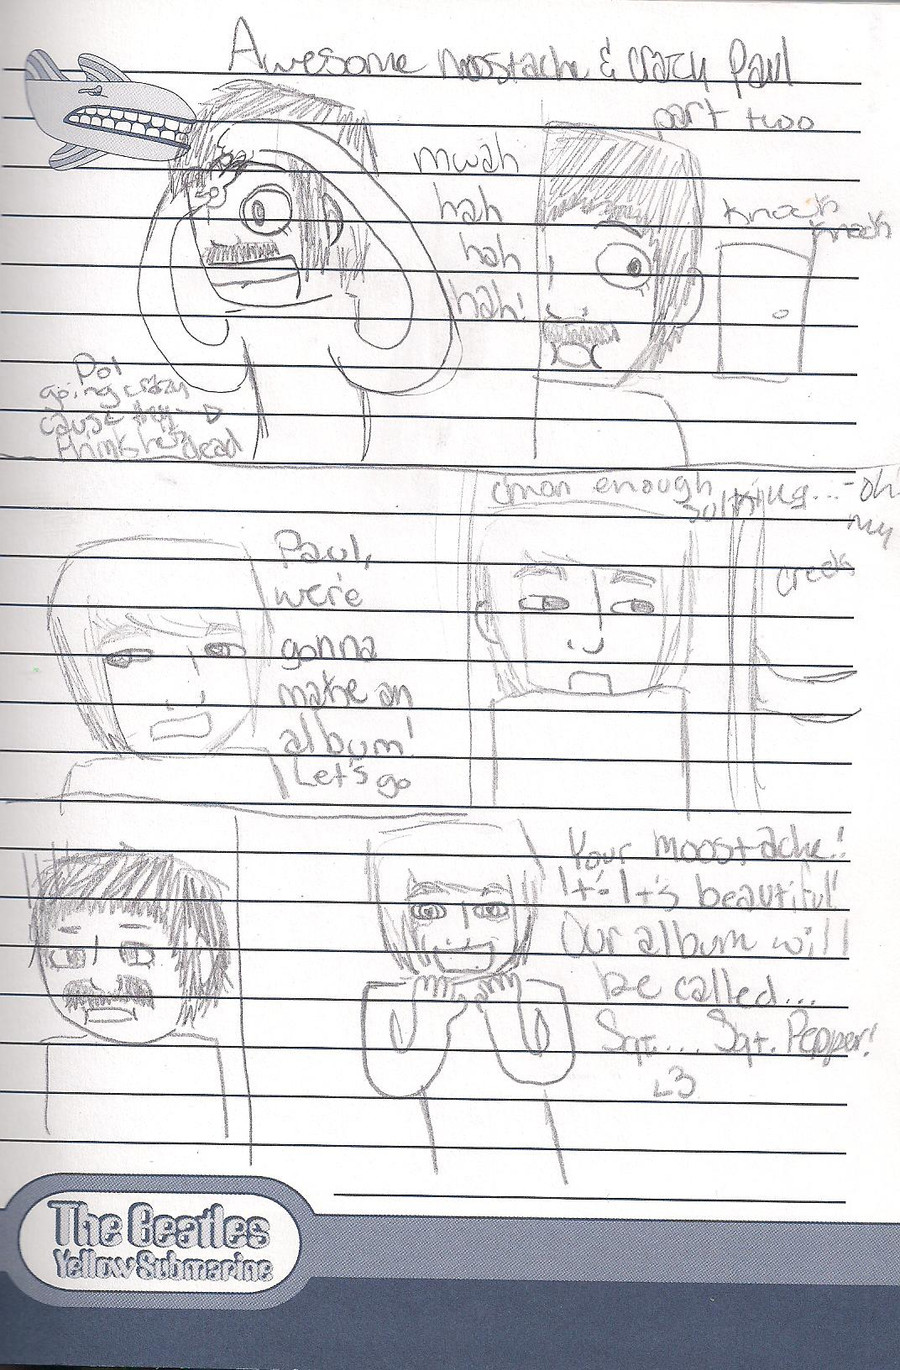 Awesome moostache & crazy Paul
part two
mwah
hah
hah
hah!
knock
knock
Pol
going crazy
cause they
thinks he's
dead
Paul,
we're
gonna
make an
album!
Let's go
c'mon enough
sulking... -oh
my
creek
Your moostache!
It's- It's beautiful!
Our album will
be called...
Sgt.... Sgt. Pepper!
<3
The Beatles
Yellow Submarine